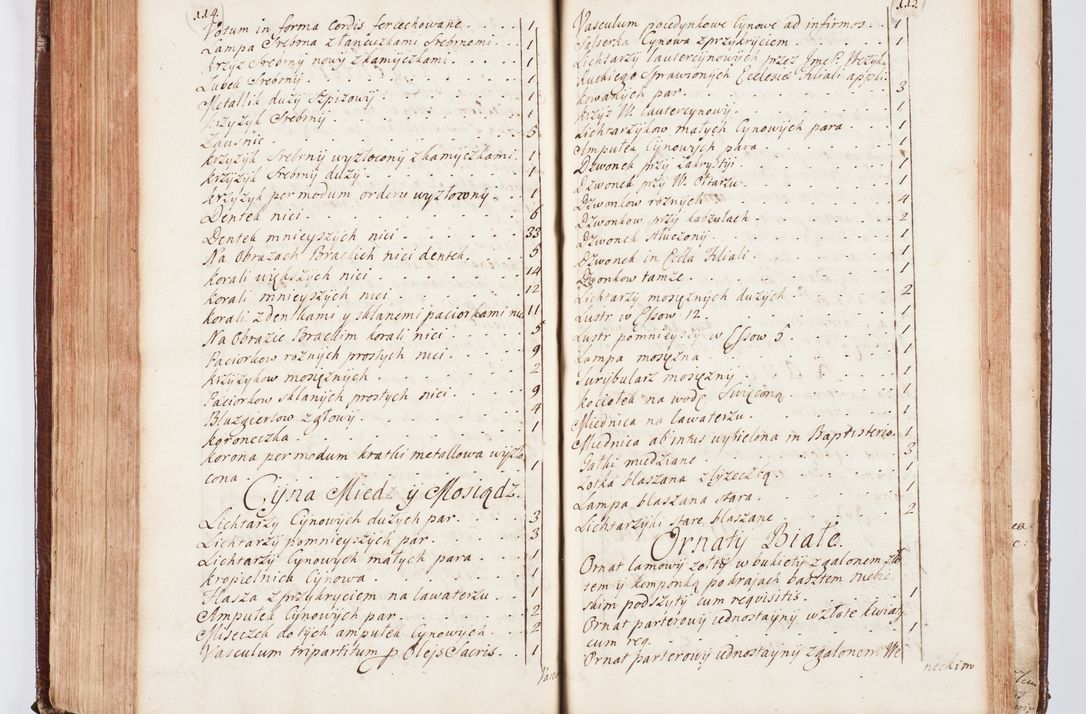 114.
Votum in forma Cordis fercechowane 1
Lampa Srebrna z łancuzkami Srebrnemi 1
krzyz Srebrny nowy z kamyczkami 1
Lubek Srebrnÿ 1
Metallik duzÿ Szpizowÿ 1
krzyzyk Srebrnÿ 1
Zausnic 5
krzÿzÿk Srebrnÿ wyzłocony z kamÿczkami 1
krzÿzÿk Srebrnÿ duzÿ 1
krzyzyk per modum orderu wyzłocony 1
Dentek nici 6
Dentek mnieÿszÿch nici 33
Na Obrazach Brackich nici dentek 5
korali większych nici 14
korali mnieÿszÿch nici 12
korali z dentkami y sklanemi paciorkami nici 11
Na Obrazie Brackim korali nici 5
Paciorkow roznÿch prostÿch nici 9
krzÿzÿkow mosięznÿch 2
Paciorkow sklanÿch prostÿch nici 9
Bluzgierow z głowÿ 4
koroneczka 1
korona per modum kratki metallowa wÿzło
cona 1
Cÿna Miedz ÿ Mosiądz.
Lichtarzÿ Cÿnowÿch duzÿch par 3
Lichtarzÿ pomnieyszÿch par 3
Lichtarzÿ Cÿnowÿch małÿch para 1
kropielnica Cÿnowa 1
Flasza z przÿkryciem na lawaterzu 1
Ampułek Cÿnowÿch par 2
Miseczek do tÿch ampułek Cÿnowÿch 2
Vasculum tripartitum p Olejs Sacris 1
Vascu
115.
Vasculum poiedÿnkowe Cÿnowe ad infirmos 1
Salserka Cÿnowa z przykryciem 1
Lichtarzÿ lautercÿnowÿch przez Jmć P.
kuckiego Sprawionÿch Ecclesiæ Filiali appli
kowanÿch par 3
krzÿz W. lautercÿnowÿ 1
Lichtarzÿkow małÿch Cÿnowÿch para 1
Ampułek Cÿnowÿch para 1
Dzwonek przÿ Zakrÿstÿi 1
Dzwonek przÿ W. Ołtarzu 1
Dzwonkow roznÿch 4
Dzwonkow przÿ kaszulach 2
Dzwonek stłuczonÿ 1
Dzwonek in Eccla Filiali 1
Dzwonkow tamze 1
Lichtarzÿ mosięznÿch duzÿch 2
Lustr w Cssow 12. 1
Lustr pomnieÿszÿ w Cssow 5 1
Lampa mosięzna 1
Turÿbularz mosięznÿ 1
kociołek na wodę Swięconą 1
Miednica na lawaterzu 1
Miednica ab intus wybielona in Baptisterio 1
Gałki miedziane 3
Łotka blaszana z łÿzeczką 1
Lampa blaszana stara 1
Lichtarzÿki stare blaszane 2
Ornatÿ Białe.
Ornat lamowÿ zołtÿ w bukietÿ z galonem zło
tem ÿ komponką po kraiach baÿtem niebie
skim podszÿtÿ cum requisitis 1
Ornat parterowÿ iednostaÿnÿ w złote kwiaty
cum req. 1
Ornat parterowÿ iednostaÿnÿ z galonem We
neckim